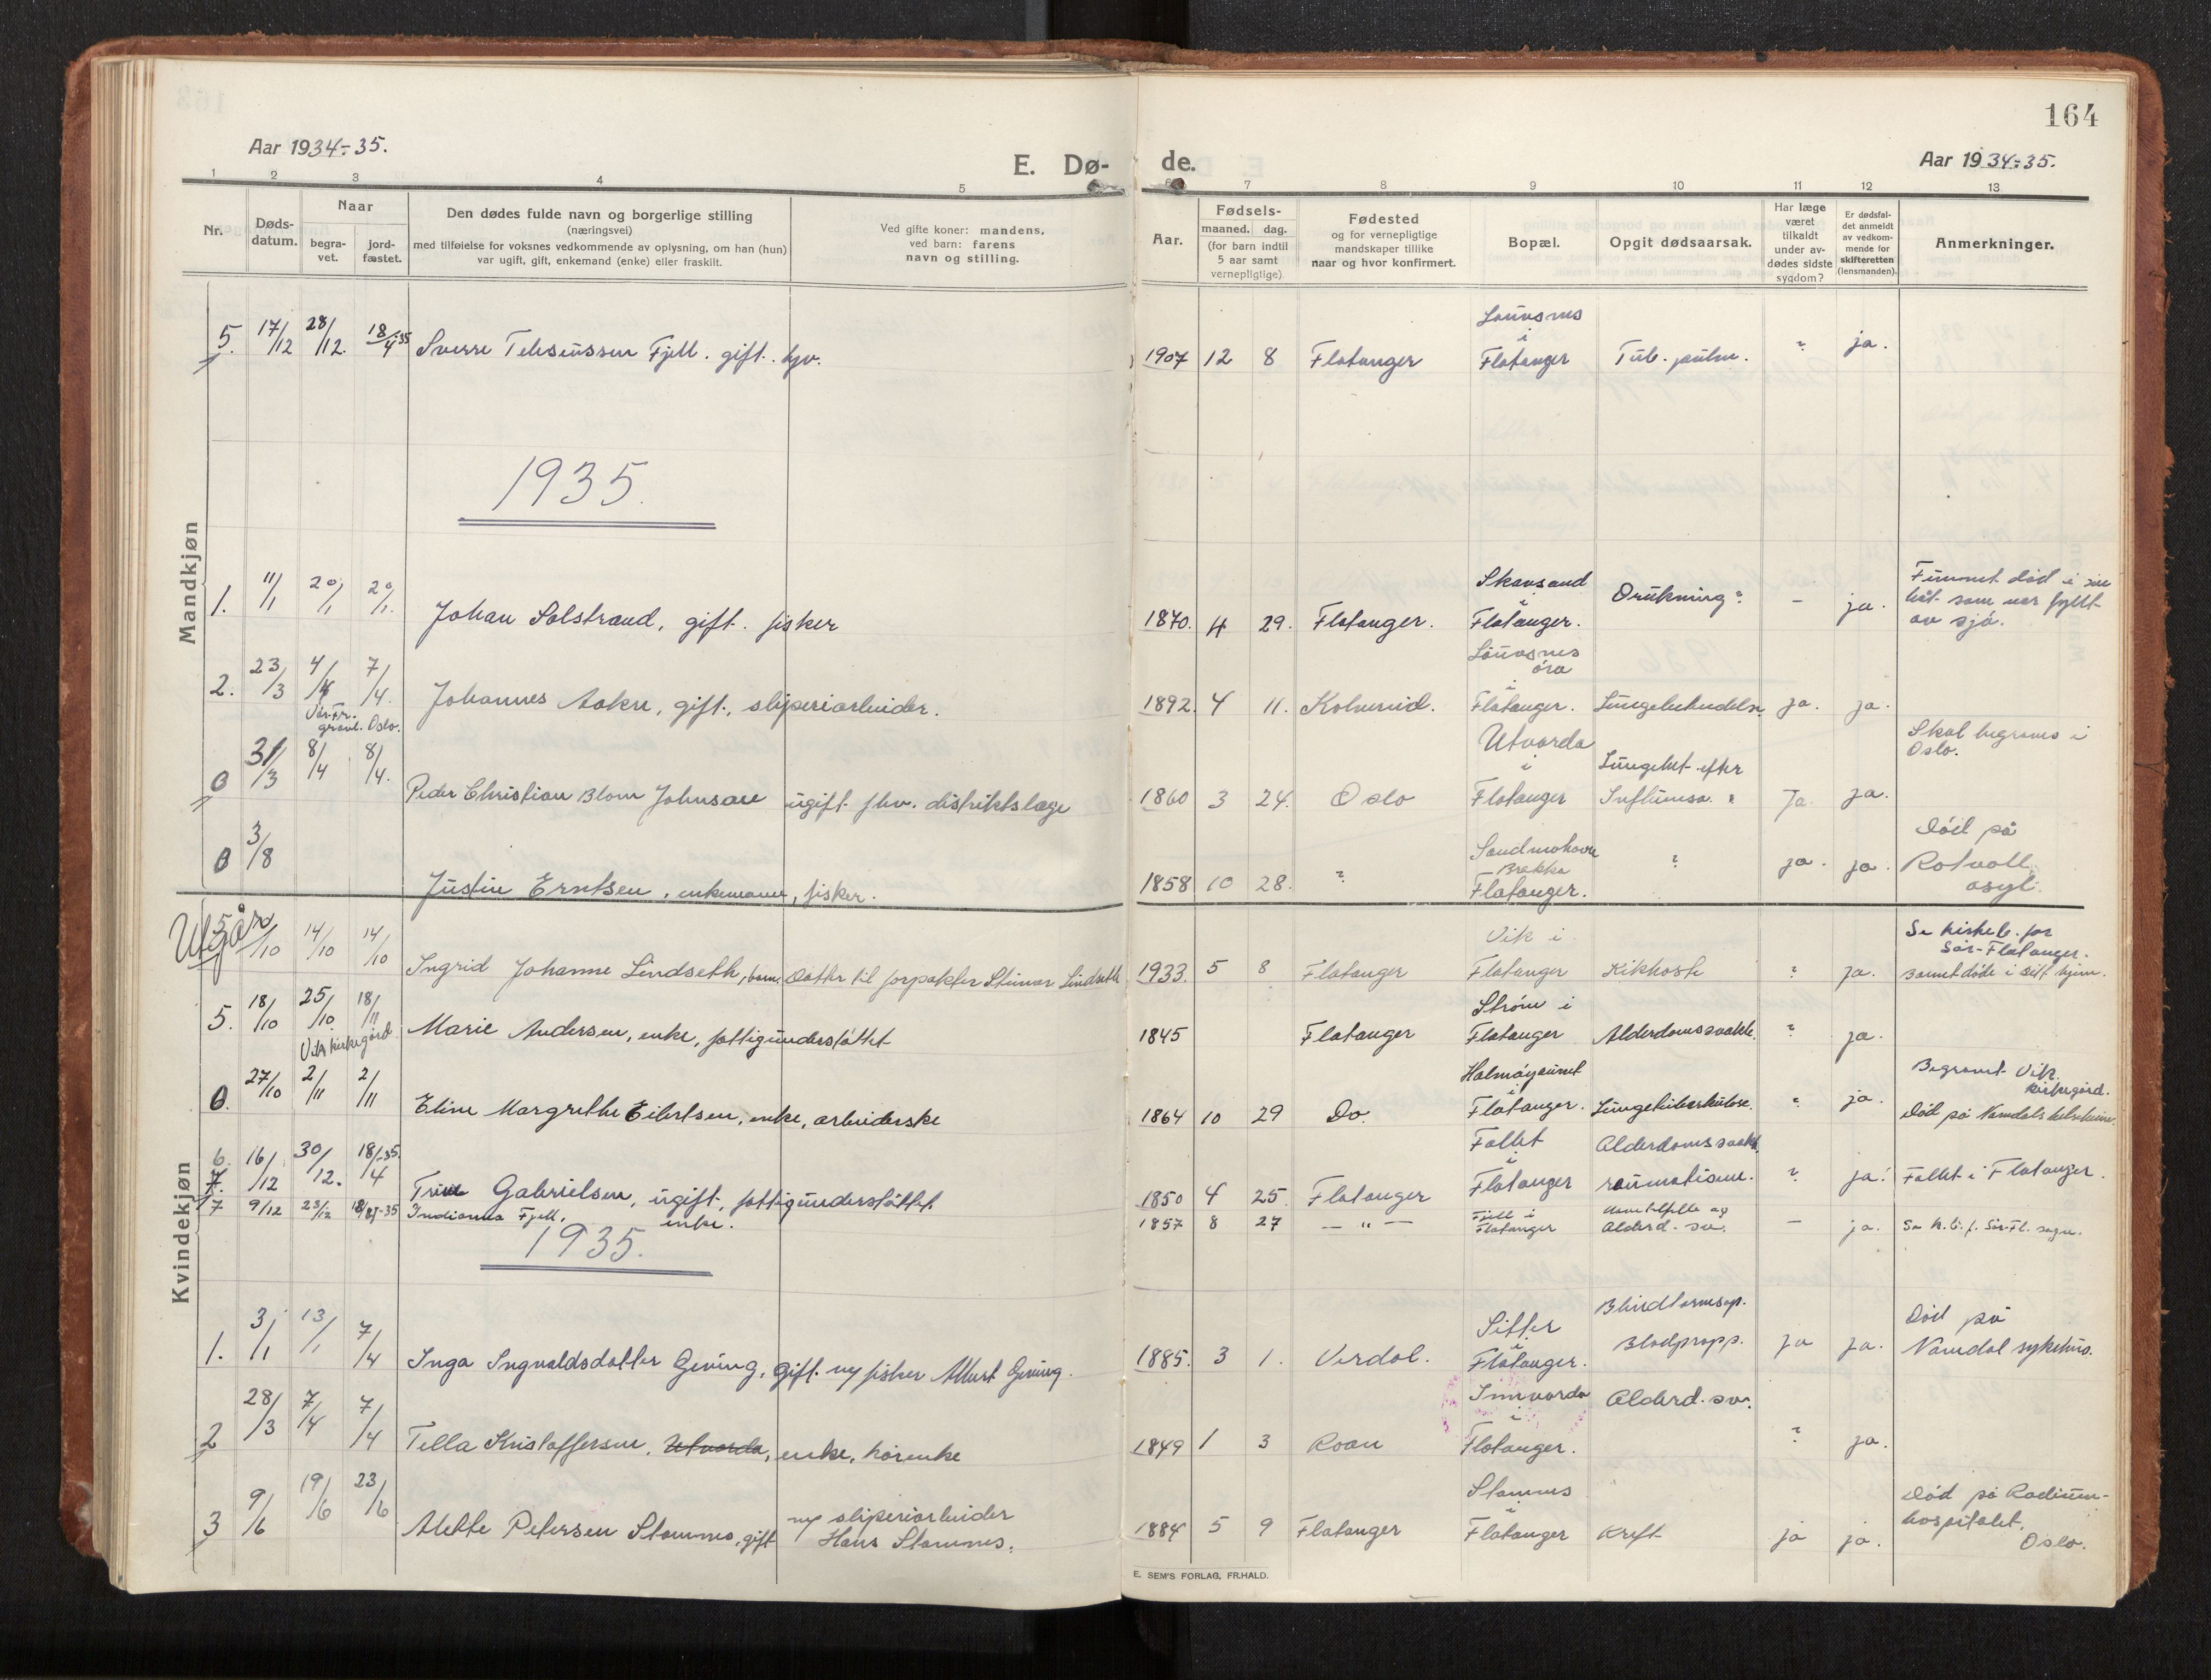 164
Aar 1934-35.
E. Dø-
de.
Aar 1934-35.
1 2 3 4 5 7 8 9 10 11 12 13
Nr.
Døds-
datum.
Naar
begra-
vet.
jord-
fæstet.
Den dødes fulde navn og borgerlige stilling
(næringsvei)
med tilføielse for voksnes vedkommende av oplysning, om han (hun)
var ugift, gift, enkemand (enke) eller fraskilt.
Ved gifte koner: mandens,
ved barn: farens
navn og stilling.
Aar.
Fødsels-
maaned. dag.
(for barn indtil
5 aar samt
vernepligtige)
Fødested
og for vernepligtige
mandskaper tillike
naar og hvor konfirmert.
Bopæl.
Opgit dødsaarsak.
Har læge
været
tilkaldt
under av-
dødes sidste
sygdom?
Er dødsfal-
det anmeldt
av vedkom-
mende for
skifteretten
(lensmanden).
Anmerkninger.
Mandkjøn
5. 17/12 28/12. 18/4 35 Sverre Fjell. gift. 1907 12 8 Flatanger
Lauvsnes
i
Flatanger
Tub. pulm. ? ja.
1935.
1. 11/1 20/1 20/1. Johan Solstrand, gift. fisker 1870. 4 29. Flatanger.
Skavsand
i
Flatanger.
Drukning? - ja.
Funnet død i sin
båt som var fyllt
av sjø.
2. 23/3 4/4 7/4.
Vår Fr.
gravl. Oslo.
Johannes Aakre, gift, sliperiarbeider. 1892. 4 11. Kolvereid.
Lauvsnes
øra
i
Flatanger.
Lungebetendelse. ja. ja.
0 31/3 8/4 8/4. Peder Christian Blom Johnsen ugift fhv. distriktslæge 1860 3 24. Oslo
Utvorda
i
Flatanger
Lungebet. efter
Influensa. Ja. ja.
Skal begraves i
Oslo.
0 3/8 Justin Erntsen, enkemann, fisker. 1858 10 28. ?
Brekka
Flatanger.
? ja. ja.
Død på
Rotvoll
asyl.
Kvindekjøn
Utgår
5/10 14/10 14/10 Ingrid Johanne Lindseth, barn. Datter til forpakter Steinar Lindseth 1933. 5 8 Flatanger
Vik i
Flatanger
Kikhoste ? ja.
Se kirkeb. for
Sør-Flatanger.
Barnet døde i sitt hjem.
5. 18/10 25/10 18/11
Vik kirkegård
Marie Andersen, enke, fattigunderstøttet 1845 Flatanger
Strøm i
Flatanger
Alderdomssvakh. ? ja.
0. 27/10 2/11 2/11 Eline Margrethe Eilertsen, enke, arbeiderske 1864 10 29 Do.
Halmøyaunet
i
Flatanger.
Lungetuberkulose. ? ja.
Begravet Vik
kirkegård.
Død på Namdals helseheim.
6.
7. 16/12 30/12. 18/4-35. Trine Gabrielsen, ugift, fattigunderstøttet. 1850 4 25 Flatanger
Fallet
i
Flatanger
Alderdomssvakh.
raumatisme. ? ja. Fallet i Flatanger.
7 9/12 23/12 -35 Indianna Fjell, enke. 1857 8 27 — " —
Fjell i
Flatanger
og
Alderd. sv. - ja. Se k.b. f. Sør-Fl. sogn.
1935.
1. 3/1 13/1 7/4 Inga Ingvaldsdatter Geving, gift. m/ fisker Albert Geving. 1885. 3 1. Verdal.
Sitter
i
Flatanger.
Blindtarmsop.
Blodpropp. ja ja.
Død på
Namdal sykehus.
2 28/3 7/4 7/4 Tella Kristoffersen, Utvorda, enke, kårenke 1849 1 3 Roan
Innvorda
i
Flatanger.
Alderd. sv. ? ja.
3 9/6 19/6 23/6 Alette Petersen Stamnes, gift
m/ sliperiarbeider
Hans Stamnes.
1884 5 9 Flatanger
Stamnes
i
Flatanger
Kreft ja ja.
Død på Radium-
hospitalet.
Oslo.
E. SEM'S FORLAG, FR.HALD.